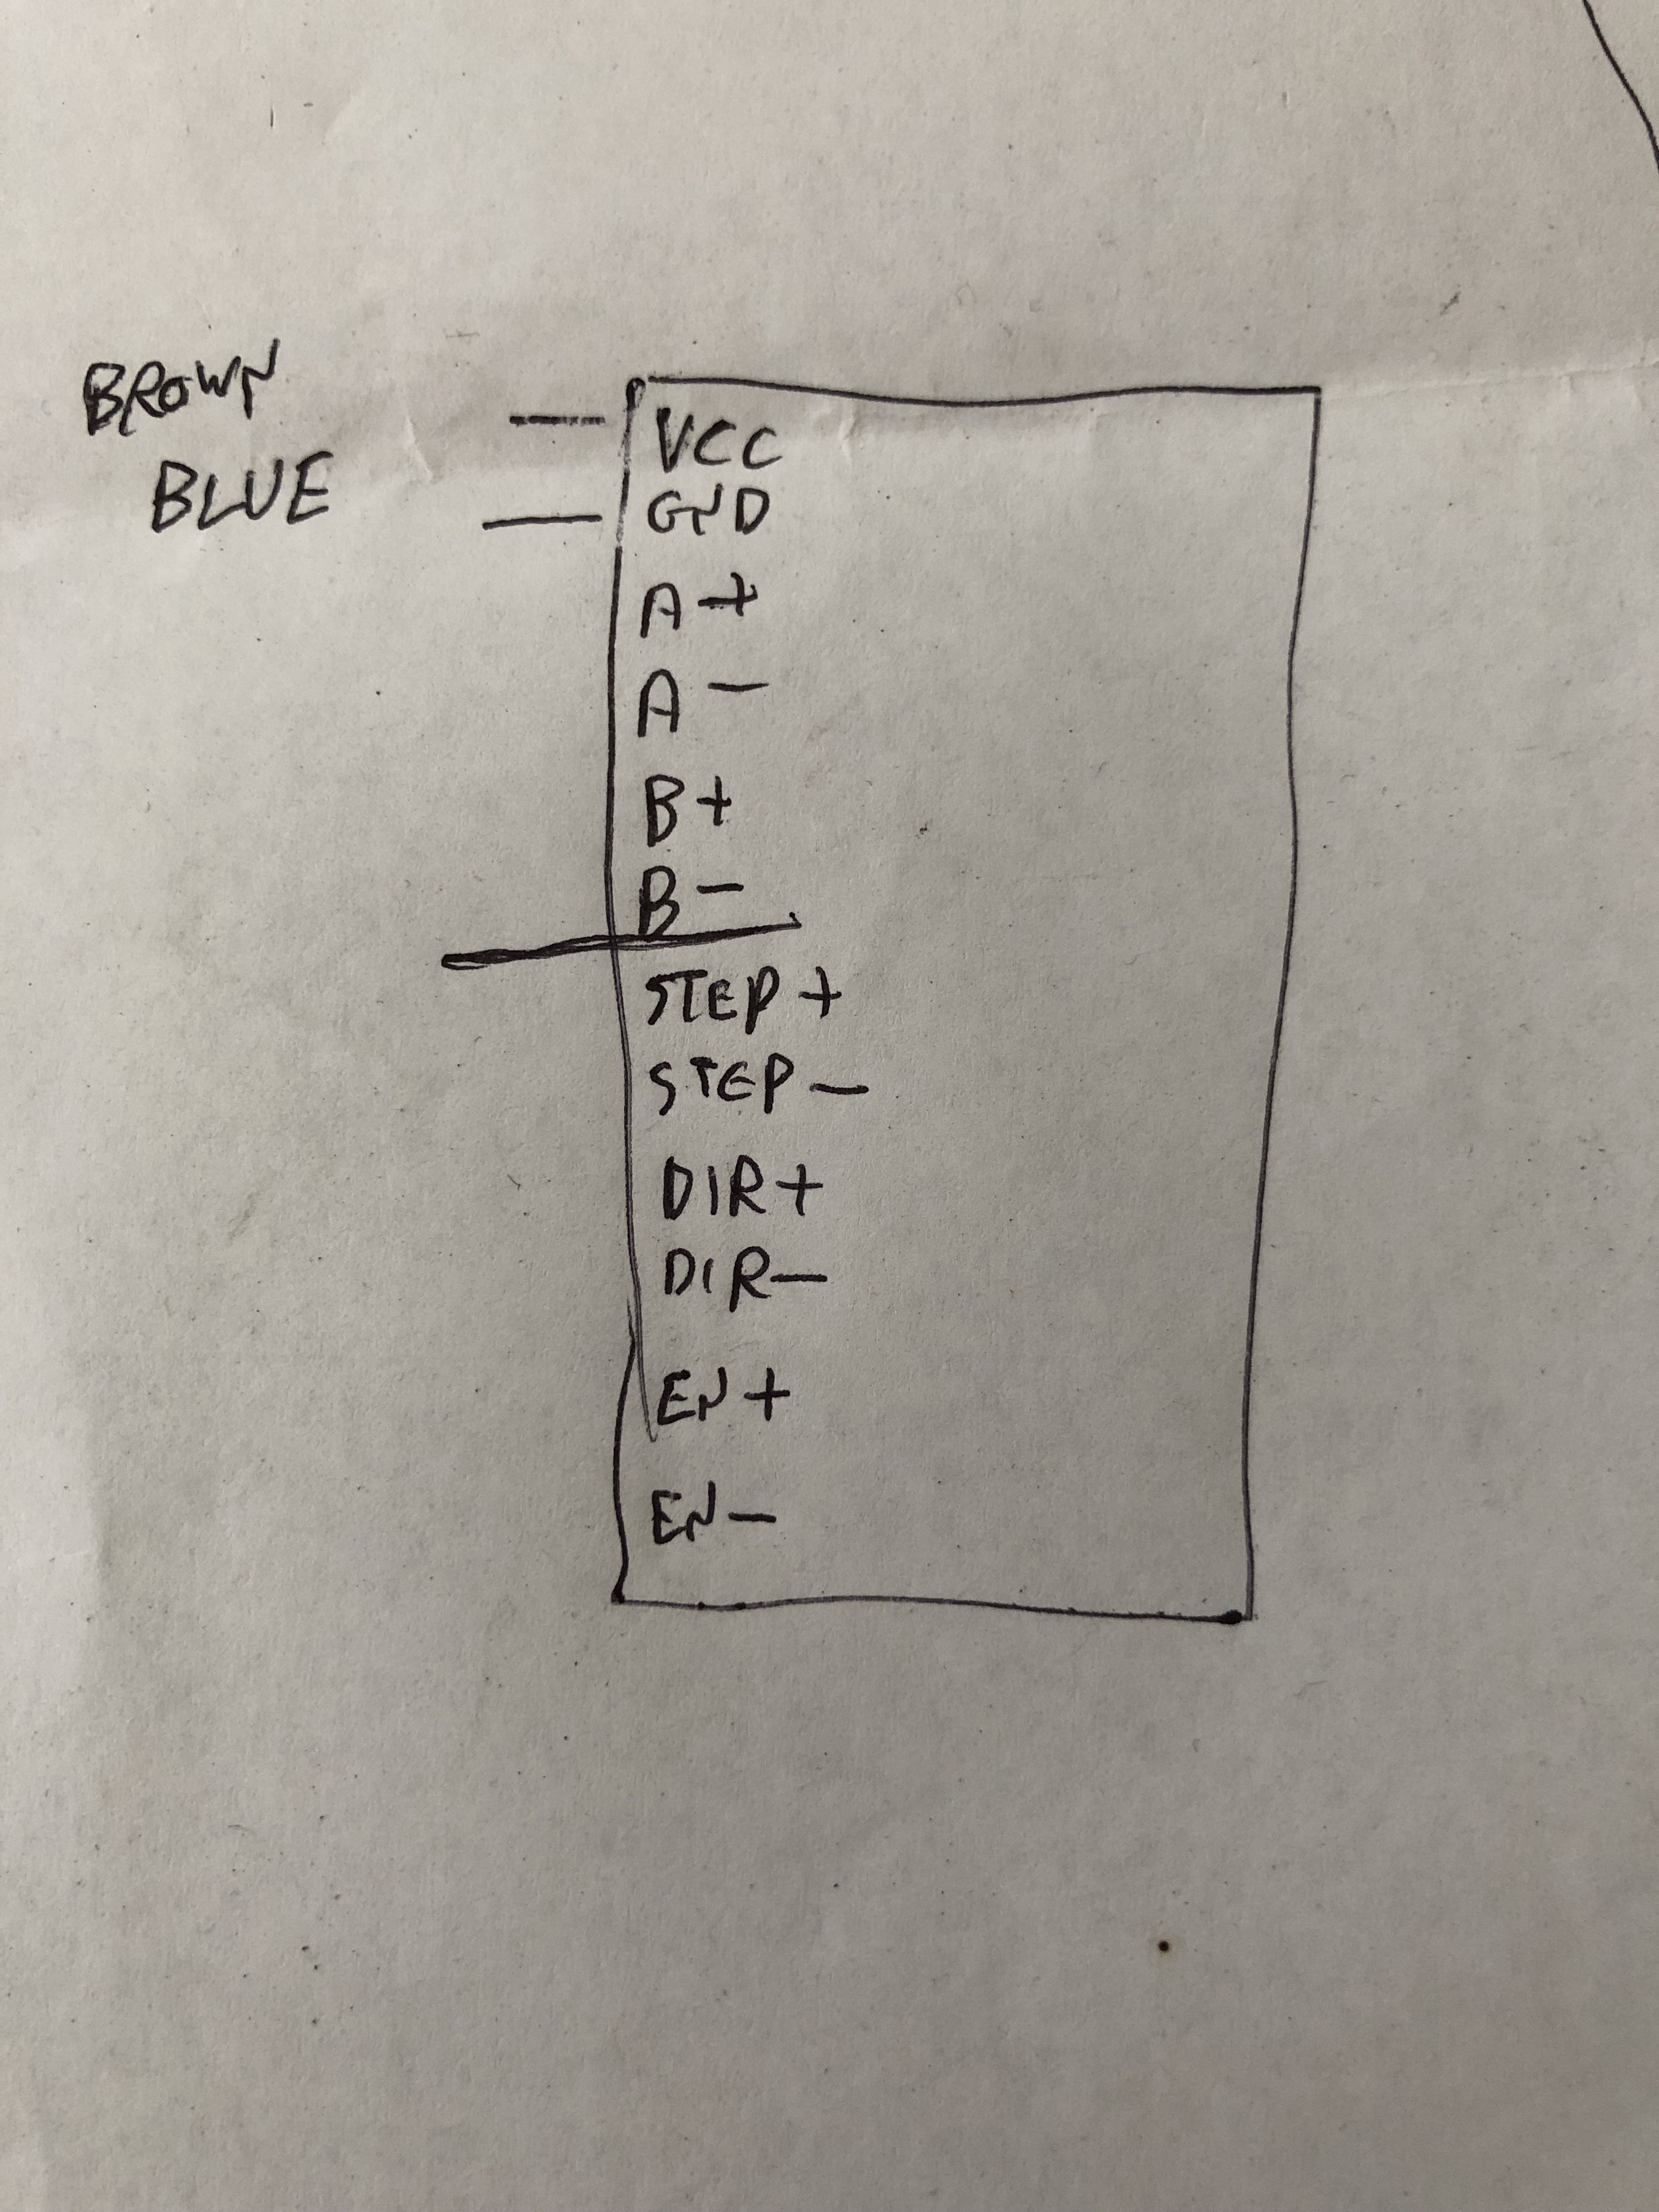 BROWN
BLUE
VCC
GND
A+
A-
B+
B-
STEP+
STEP-
DIR+
DIR-
EN+
EN-